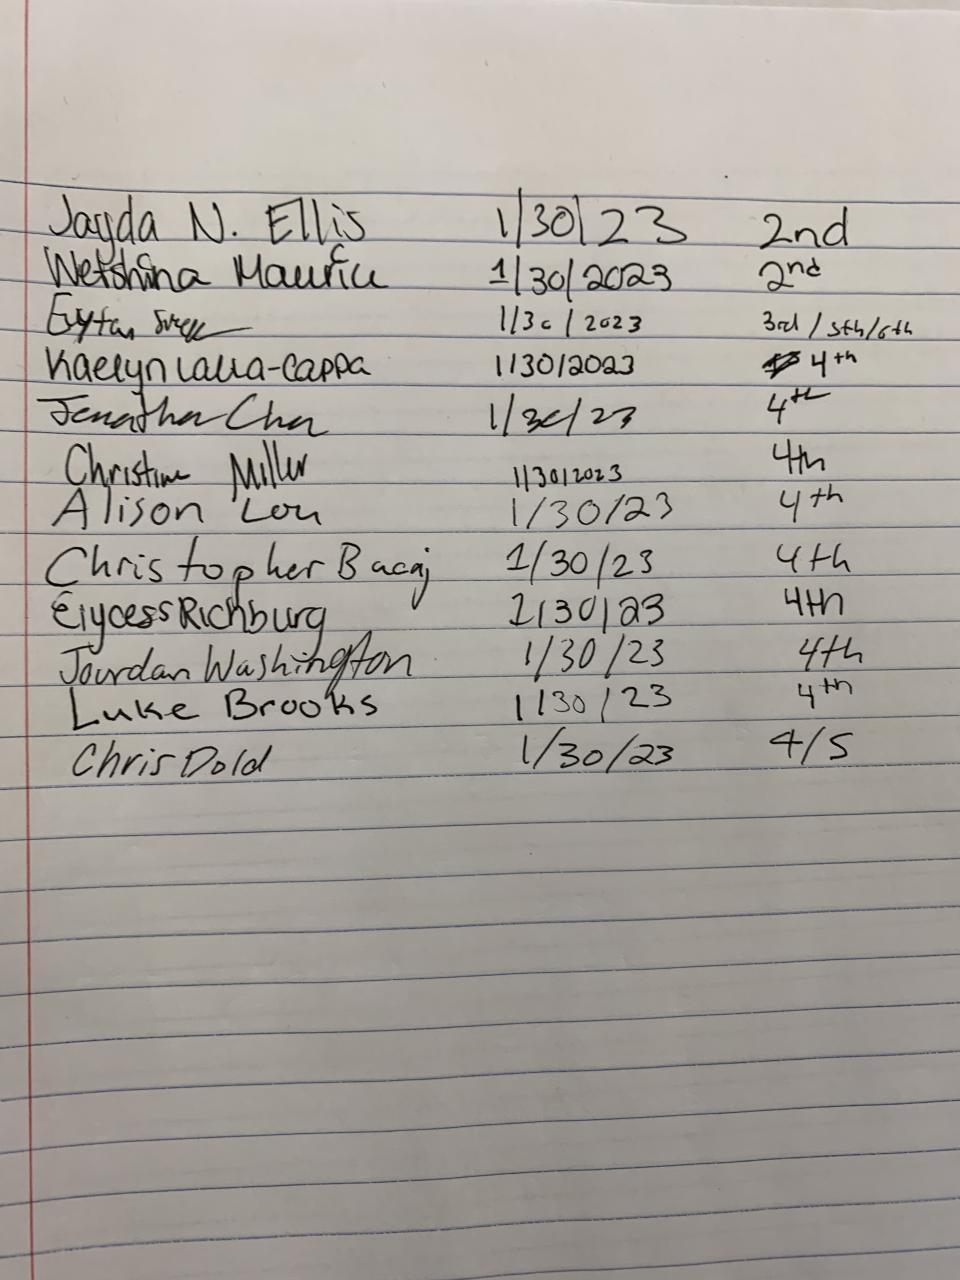 Jayda N. Ellis 1/30/23 2nd
Wetshina Maurice 1/30/2023 2nd
Eytan 1/30/2023 3rd/5th/6th
Kaelyn Lalla-Cappa 1/30/2023 4th
Jonathan Chen 1/30/23 4th
Christine Miller 1/30/2023 4th
Alison Lou 1/30/23 4th
Christopher Bacaj 1/30/23 4th
Eiycess Richburg 1/30/23 4th
Jourdan Washington 1/30/23 4th
Luke Brooks 1/30/23 4th
Chris Dold 1/30/23 4/5